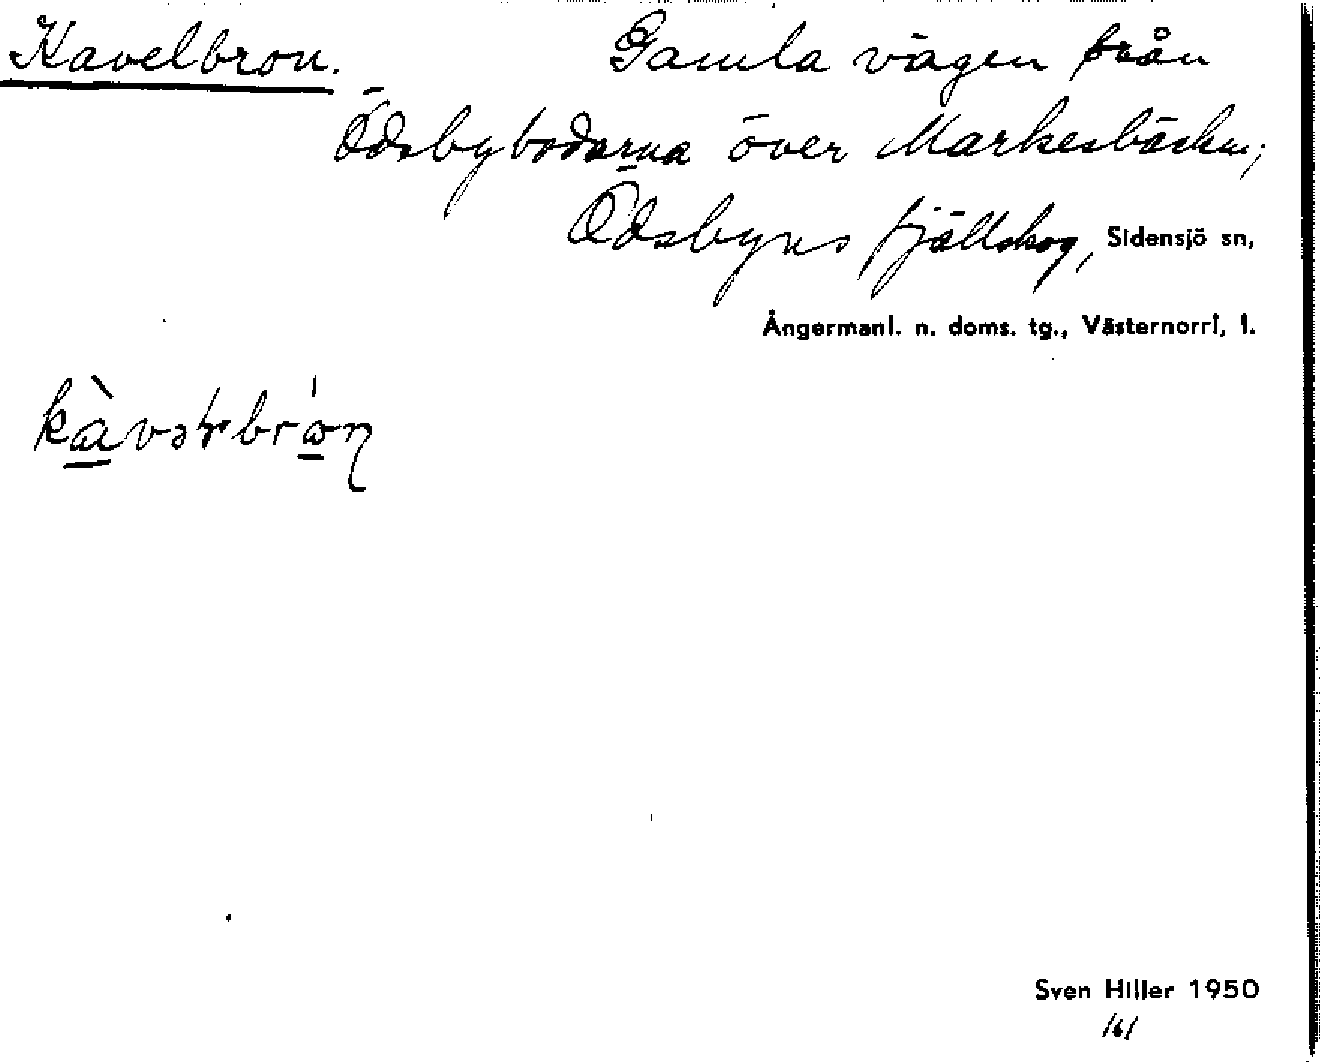 Kavelbron. Gamla vägen från
Ödsbybodarna över Markesbäcken;
Ödsbyns fjällskog, Sidensjö sn,
Ångermanl. n. doms. tg., Västernorrl, l.
Sven Hiller 1950